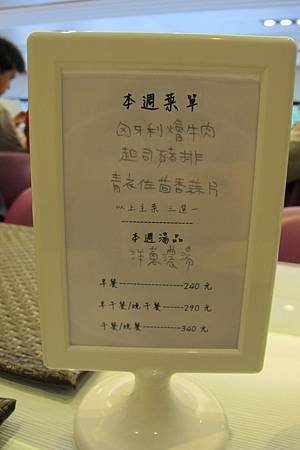 本週菜單
匈牙利燴牛肉
起司豬排
青衣佐茴香蒜片
以上主菜 三選一
本週湯品
洋蔥濃湯
早餐----------------240 元
早午餐/晚午餐------290 元
午餐/晚餐----------340 元